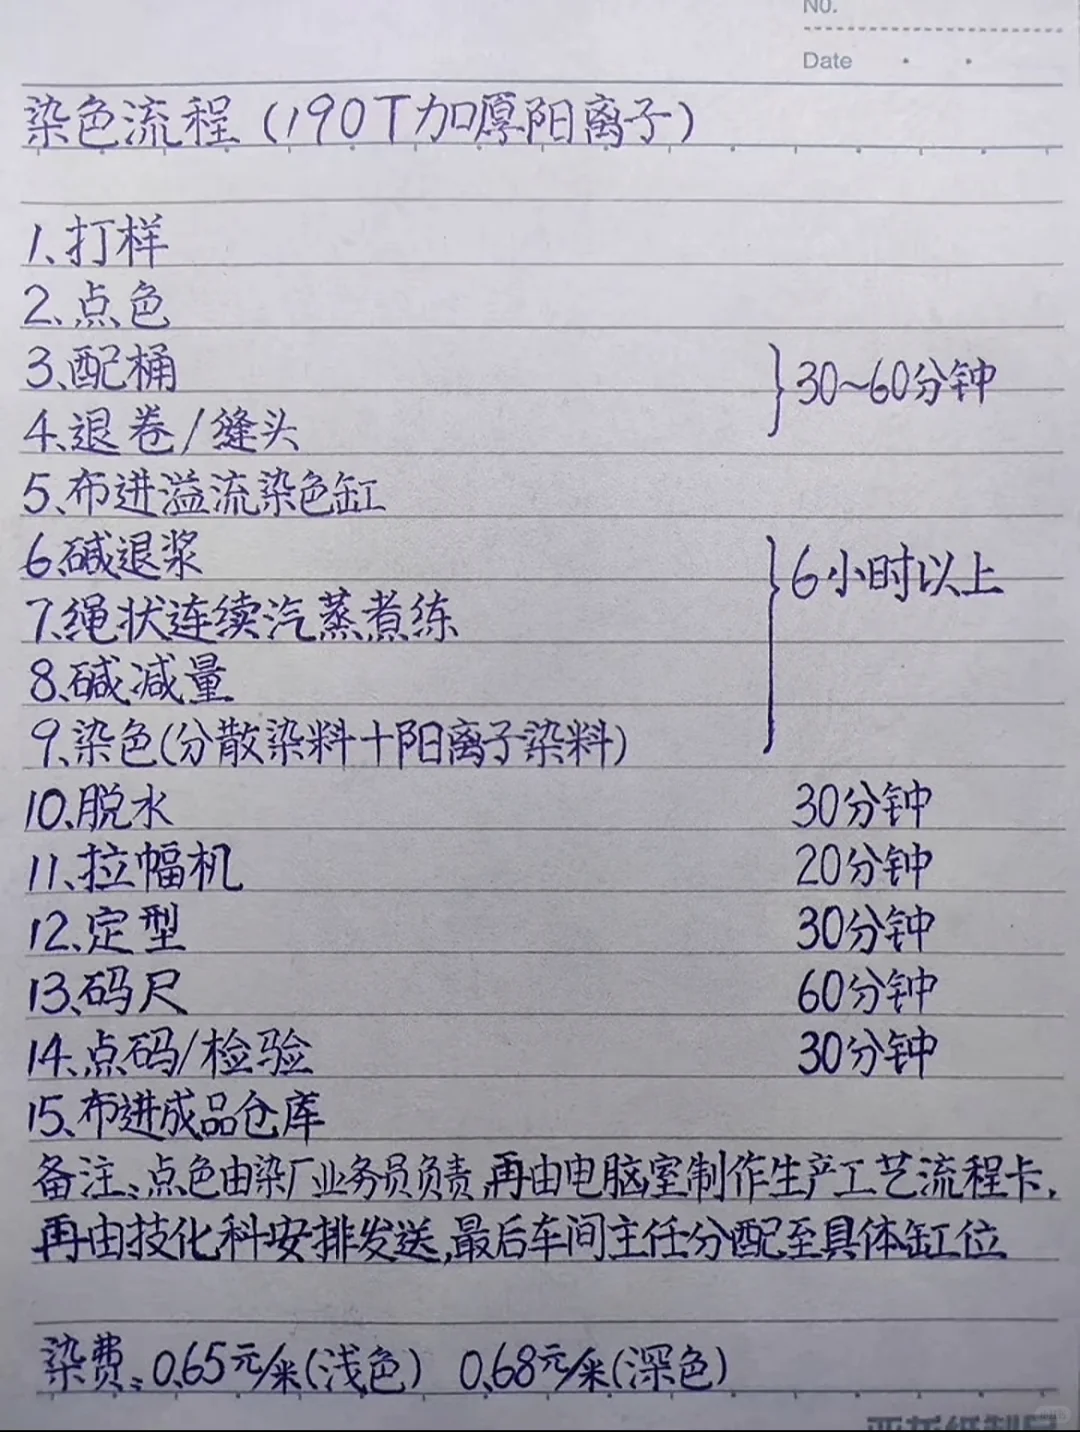 No.
Date
染色流程(190T加厚阳离子)
1、打样
2、点色
3、配桶
30~60分钟
4、退卷/缝头
5、布进溢流染色缸
6、碱退浆
6小时以上
7、绳状连续汽蒸煮练
8、碱减量
9、染色(分散染料+阳离子染料)
10、脱水 30分钟
11、拉幅机 20分钟
12、定型 30分钟
13、码尺 60分钟
14、点码/检验 30分钟
15、布进成品仓库
备注:点色由染厂业务员负责,再由电脑室制作生产工艺流程卡,
再由技化科安排发送,最后车间主任分配至具体缸位
染费:0.65元/米(浅色) 0.68元/米(深色)